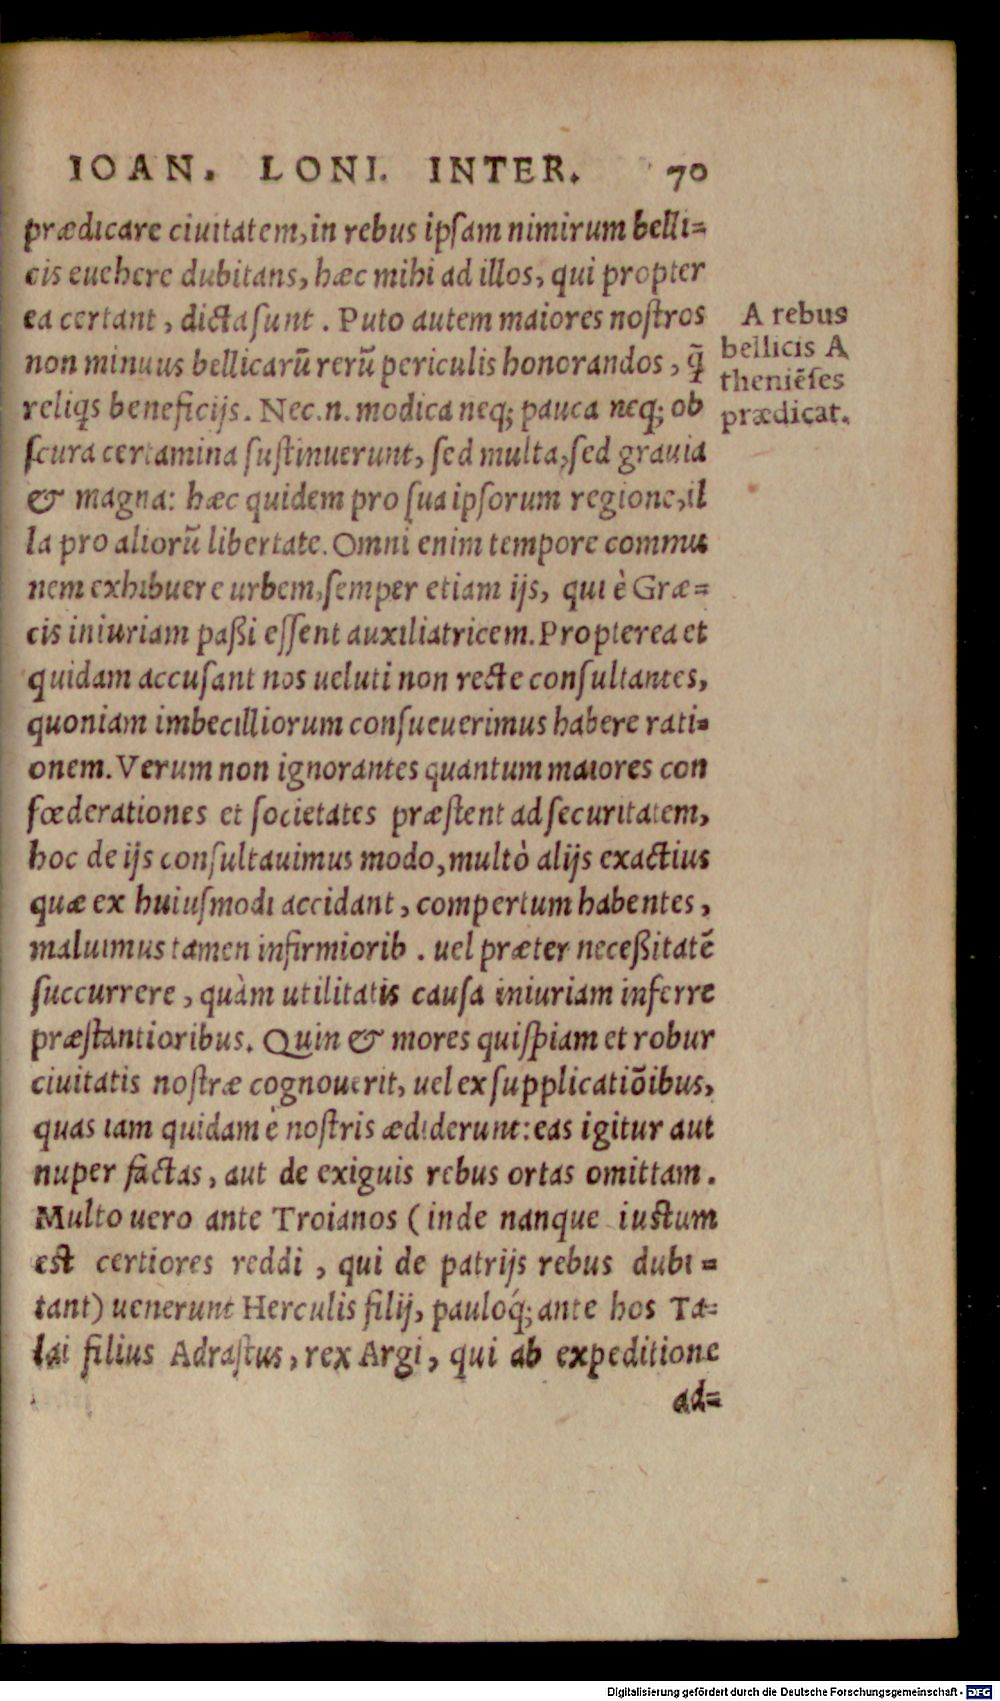 IOAN. LONI. INTER. 70
prædicare ciuitatem, in rebus ipſam nimirum belli=
cis euehere dubitans, hæc mihi ad illos, qui propter
ea certant, dicta ſunt. Puto autem maiores noſtros
non minuus bellicarū rerū periculis honorandos, q̃
reliqs beneficijs. Nec.n. modica neq; pauca neq; ob
ſcura certamina ſuſtinuerunt, ſed multa, ſed grauia
& magna: hæc quidem pro ſua ipſorum regione, il
la pro aliorū libertate. Omni enim tempore commu
nem exhibuere urbem, ſemper etiam ijs, qui è Græ=
cis iniuriam paßi eſſent auxiliatricem. Propterea et
quidam accuſant nos ueluti non recte conſultantes,
quoniam imbecilliorum conſueuerimus habere rati=
onem. Verum non ignorantes quantum maiores con
fœderationes et ſocietates præſtent ad ſecuritatem,
hoc de ijs conſultauimus modo, multò alijs exactius
quæ ex huiuſmodi accidant, compertum habentes,
maluimus tamen infirmiorib. uel præter neceßitatē
ſuccurrere, quàm utilitatis cauſa iniuriam inferre
præſtantioribus. Quin & mores quiſpiam et robur
ciuitatis noſtræ cognouerit, uel ex ſupplicatiōibus,
quas iam quidam è noſtris ædiderunt: eas igitur aut
nuper factas, aut de exiguis rebus ortas omittam.
Multo uero ante Troianos (inde nanque iustum
est certiores reddi, qui de patrijs rebus dubi=
tant) uenerunt Herculis filij, pauloq́; ante hos Ta=
lai filius Adraſtus, rex Argi, qui ab expeditione
ad=
A rebus
bellicis A
theniēſes
prædicat.
Digitalisierung gefördert durch die Deutsche Forschungsgemeinschaft - DFG